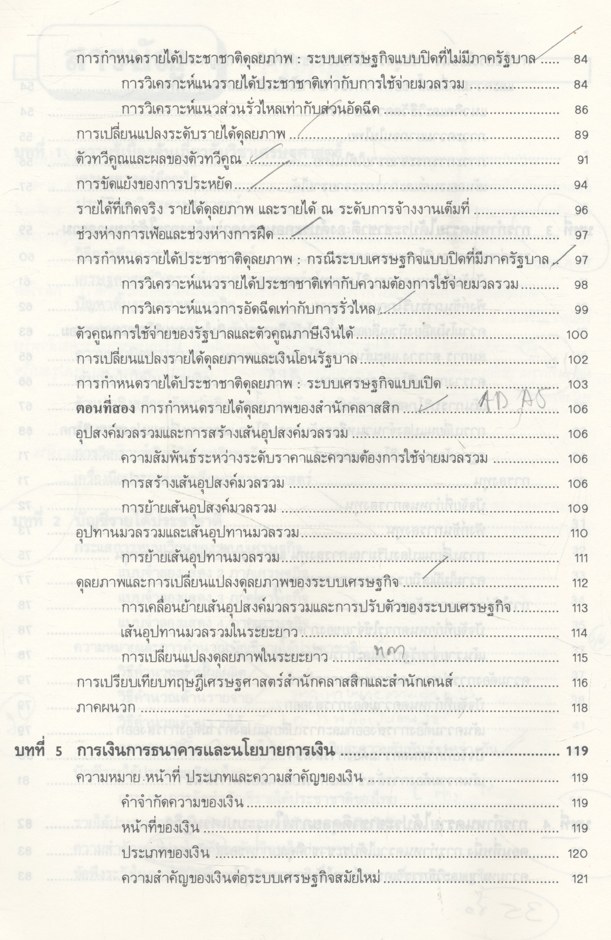 การกำหนดรายได้ประชาชาติดุลยภาพ : ระบบเศรษฐกิจแบบปิดที่ไม่มีภาครัฐบาล ..... 84
การวิเคราะห์แนวรายได้ประชาชาติเท่ากับการใช้จ่ายมวลรวม ..... 84
การวิเคราะห์แนวส่วนรั่วไหลเท่ากับส่วนอัดฉีด ..... 86
การเปลี่ยนแปลงระดับรายได้ดุลยภาพ ..... 89
ตัวทวีคูณและผลของตัวทวีคูณ ..... 91
การขัดแย้งของการประหยัด ..... 94
รายได้ที่เกิดจริง รายได้ดุลยภาพ และรายได้ ณ ระดับการจ้างงานเต็มที่ ..... 96
ช่วงห่างการเฟ้อและช่วงห่างการฝืด ..... 97
การกำหนดรายได้ประชาชาติดุลยภาพ : กรณีระบบเศรษฐกิจแบบปิดที่มีภาครัฐบาล .. 97
การวิเคราะห์แนวรายได้ประชาชาติเท่ากับความต้องการใช้จ่ายมวลรวม ..... 98
การวิเคราะห์แนวการอัดฉีดเท่ากับการรั่วไหล ..... 99
ตัวคูณการใช้จ่ายของรัฐบาลและตัวคูณภาษีเงินได้ ..... 100
การเปลี่ยนแปลงรายได้ดุลยภาพและเงินโอนรัฐบาล ..... 102
การกำหนดรายได้ประชาชาติดุลยภาพ : ระบบเศรษฐกิจแบบเปิด ..... 103
ตอนที่สอง การกำหนดรายได้ดุลยภาพของสำนักคลาสสิก ..... AD, AS 106
อุปสงค์มวลรวมและการสร้างเส้นอุปสงค์มวลรวม ..... 106
ความสัมพันธ์ระหว่างระดับราคาและความต้องการใช้จ่ายมวลรวม ..... 106
การสร้างเส้นอุปสงค์มวลรวม ..... 106
การย้ายเส้นอุปสงค์มวลรวม ..... 109
อุปทานมวลรวมและเส้นอุปทานมวลรวม ..... 110
การย้ายเส้นอุปทานมวลรวม ..... 111
ดุลยภาพและการเปลี่ยนแปลงดุลยภาพของระบบเศรษฐกิจ ..... 112
การเคลื่อนย้ายเส้นอุปสงค์มวลรวมและการปรับตัวของระบบเศรษฐกิจ ..... 113
เส้นอุปทานมวลรวมในระยะยาว ..... 114
การเปลี่ยนแปลงดุลยภาพในระยะยาว ..... 115
การเปรียบเทียบทฤษฎีเศรษฐศาสตร์สำนักคลาสสิกและสำนักเคนส์ ..... 116
ภาคผนวก ..... 118
บทที่ 5 การเงินการธนาคารและนโยบายการเงิน ..... 119
ความหมาย หน้าที่ ประเภทและความสำคัญของเงิน ..... 119
คำจำกัดความของเงิน ..... 119
หน้าที่ของเงิน ..... 119
ประเภทของเงิน ..... 120
ความสำคัญของเงินต่อระบบเศรษฐกิจสมัยใหม่ ..... 121